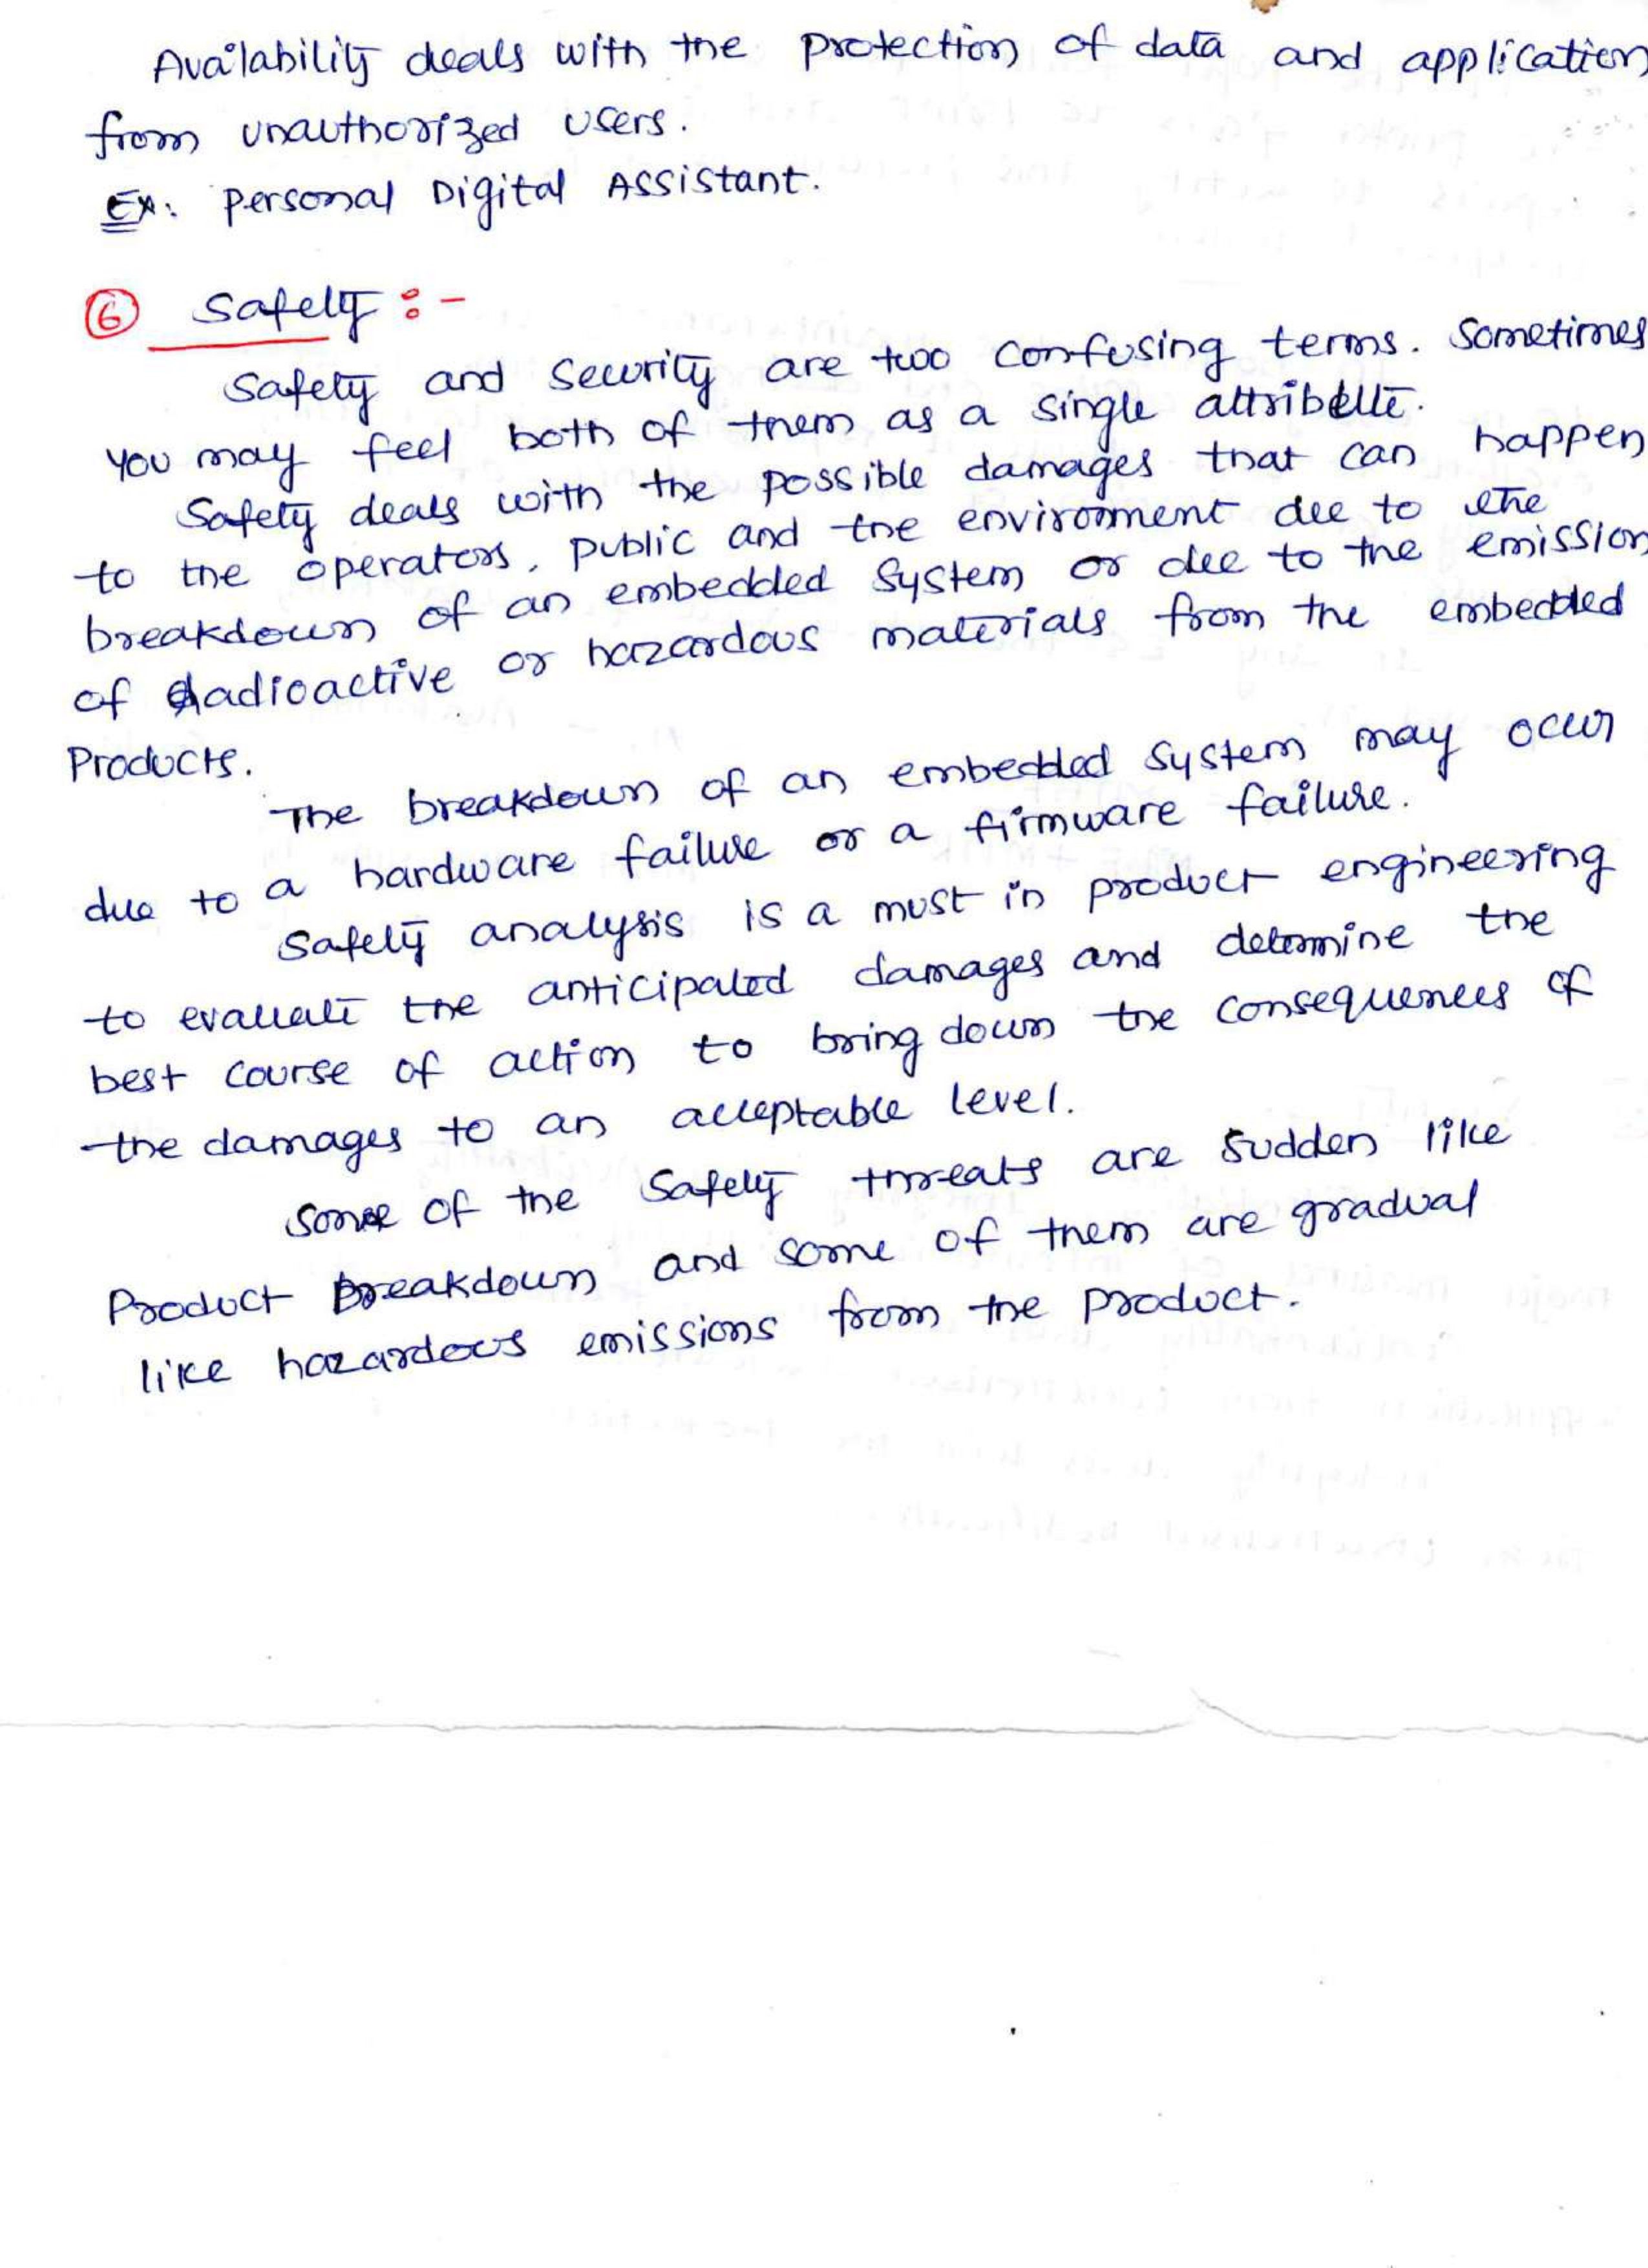 Availability deals with the protection of data and application
from unauthorized users.
Ex: Personal Digital Assistant.
⑥ Safety :-
Safety and Security are two confusing terms. Sometimes
you may feel both of them as a single attribute.
Safety deals with the possible damages that can happen
to the operators, public and the environment due to the
breakdown of an embedded system or due to the emission
of radioactive or hazardous materials from the embedded
Products.
The breakdown of an embedded system may occur
due to a hardware failure or a firmware failure.
Safety analysis is a must in product engineering
to evaluate the anticipated damages and determine the
best course of action to bring down the consequences of
the damages to an acceptable level.
Some of the Safety threats are sudden like
Product breakdown and some of them are gradual
like hazardous emissions from the product.